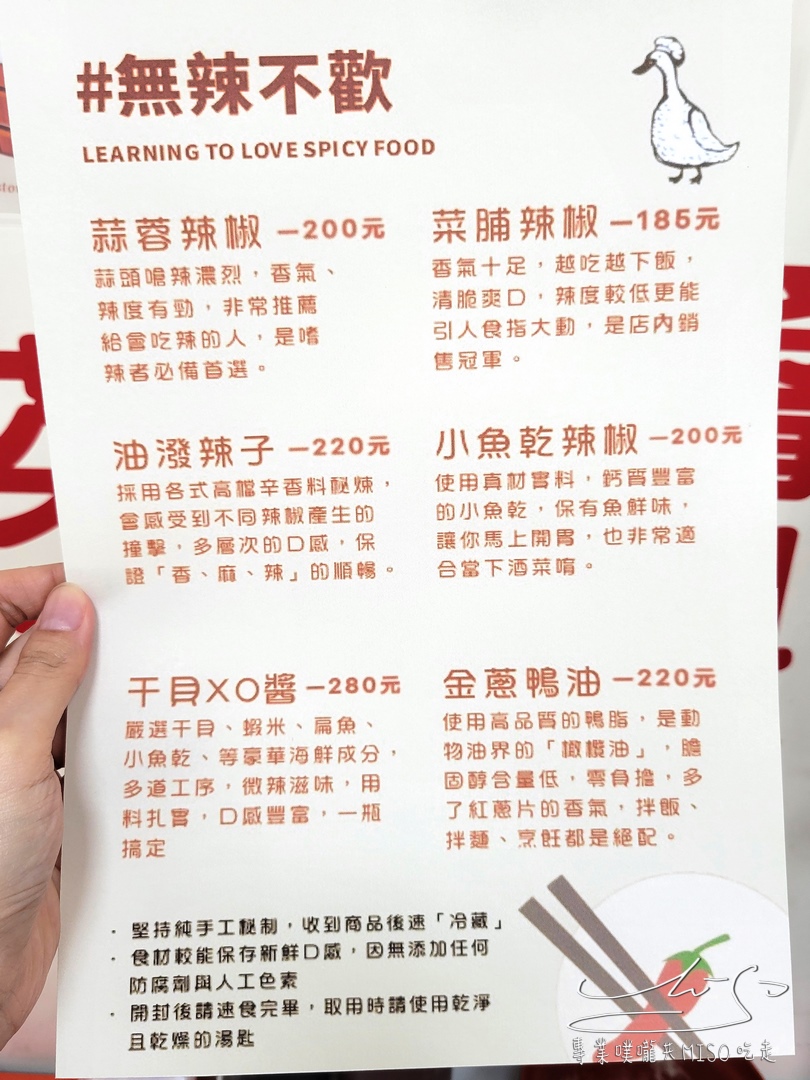 #無辣不歡
LEARNING TO LOVE SPICY FOOD
蒜蓉辣椒 —200元
蒜頭嗆辣濃烈，香氣、
辣度有勁，非常推薦
給會吃辣的人，是嗜
辣者必備首選。
菜脯辣椒 —185元
香氣十足，越吃越下飯，
清脆爽口，辣度較低更能
引人食指大動，是店內銷
售冠軍。
油潑辣子 —220元
採用各式高檔辛香料秘煉，
會感受到不同辣椒產生的
撞擊，多層次的口感，保
證「香、麻、辣」的順暢。
小魚乾辣椒 —200元
使用真材實料，鈣質豐富
的小魚乾，保有魚鮮味，
讓你馬上開胃，也非常適
合當下酒菜唷。
干貝XO醬 —280元
嚴選干貝、蝦米、扁魚、
小魚乾、等豪華海鮮成分，
多道工序，微辣滋味，用
料扎實，口感豐富，一瓶
搞定
金蔥鴨油 —220元
使用高品質的鴨脂，是動
物油界的「橄欖油」，膽
固醇含量低，零負擔，多
了紅蔥片的香氣，拌飯、
拌麵、烹飪都是絕配。
· 堅持純手工秘制，收到商品後速「冷藏」
· 食材較能保存新鮮口感，因無添加任何
防腐劑與人工色素
· 開封後請速食完畢，取用時請使用乾淨
且乾燥的湯匙
專業噗嚨共MISO吃走